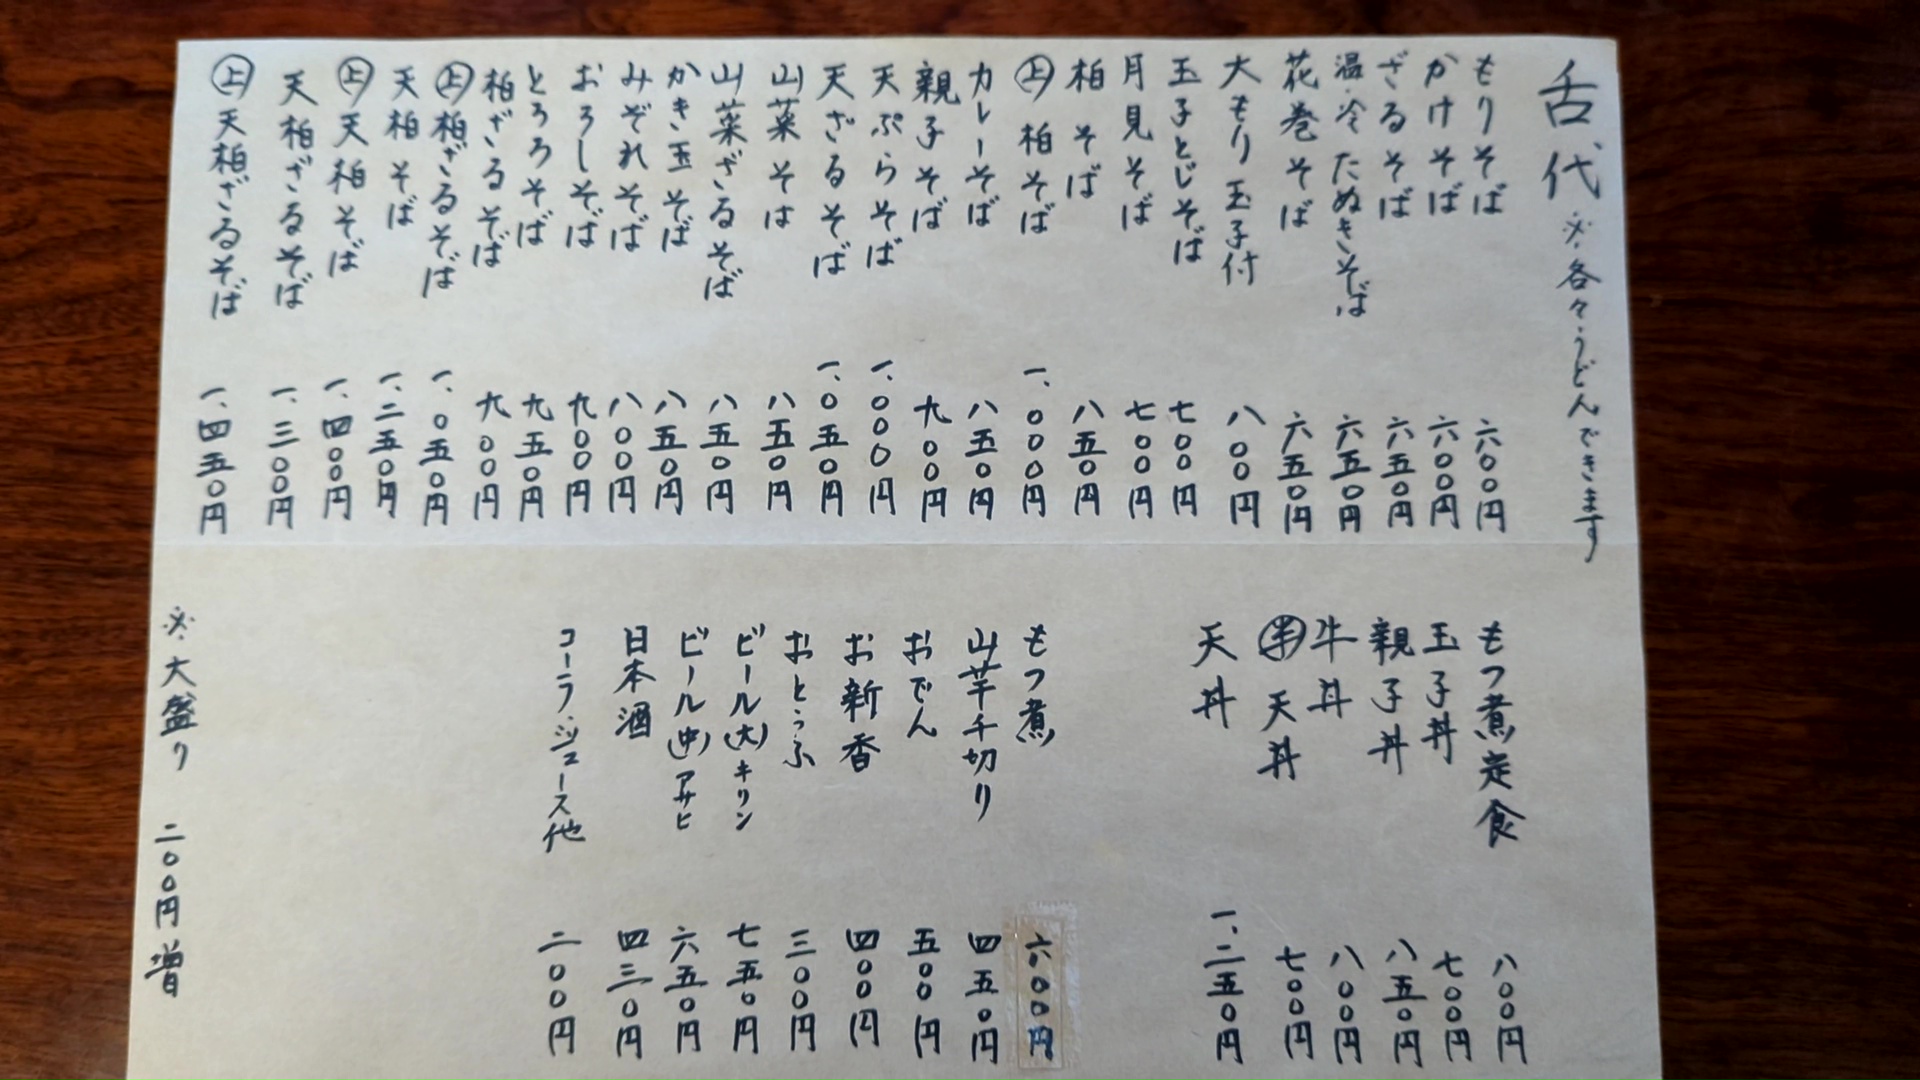 舌代 ※各々・うどんできます
もりそば 六〇〇円
かけそば 六〇〇円
ざるそば 六五〇円
温・冷たぬきそば 六五〇円
花巻そば 六五〇円
大もり玉子付 八〇〇円
玉子とじそば 七〇〇円
月見そば 七〇〇円
柏そば 八五〇円
㊤柏そば 一、〇〇〇円
カレーそば 八五〇円
親子そば 九〇〇円
天ぷらそば 一、〇〇〇円
天ざるそば 一、〇五〇円
山菜そば 八五〇円
山菜ざるそば 八五〇円
かき玉そば 八五〇円
みぞれそば 八〇〇円
おろしそば 九〇〇円
とろろそば 九五〇円
柏ざるそば 九〇〇円
㊤柏ざるそば 一、〇五〇円
天柏そば 一、二五〇円
㊤天柏そば 一、四〇〇円
天柏ざるそば 一、三〇〇円
㊤天柏ざるそば 一、四五〇円
もつ煮定食 八〇〇円
玉子丼 七〇〇円
親子丼 八五〇円
牛丼 八〇〇円
半天丼 七〇〇円
天丼 一、二五〇円
もつ煮 六〇〇円
山芋千切り 四五〇円
おでん 五〇〇円
お新香 四〇〇円
おとうふ 三〇〇円
ビール(大)キリン 七五〇円
ビール(中)アサヒ 六五〇円
日本酒 四三〇円
コーラ・ジュース他 二〇〇円
※大盛り 二〇〇円増